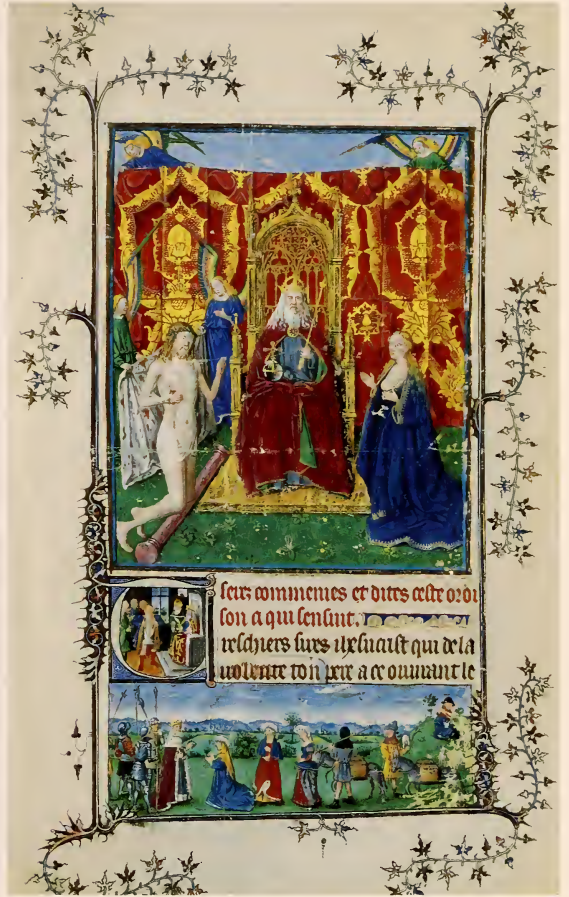 seurs commences et dites ceste oroi
son ci qui sensuit.
reschiers sires ihesucrist qui de la
voulente ton pere a ce ouvrant le